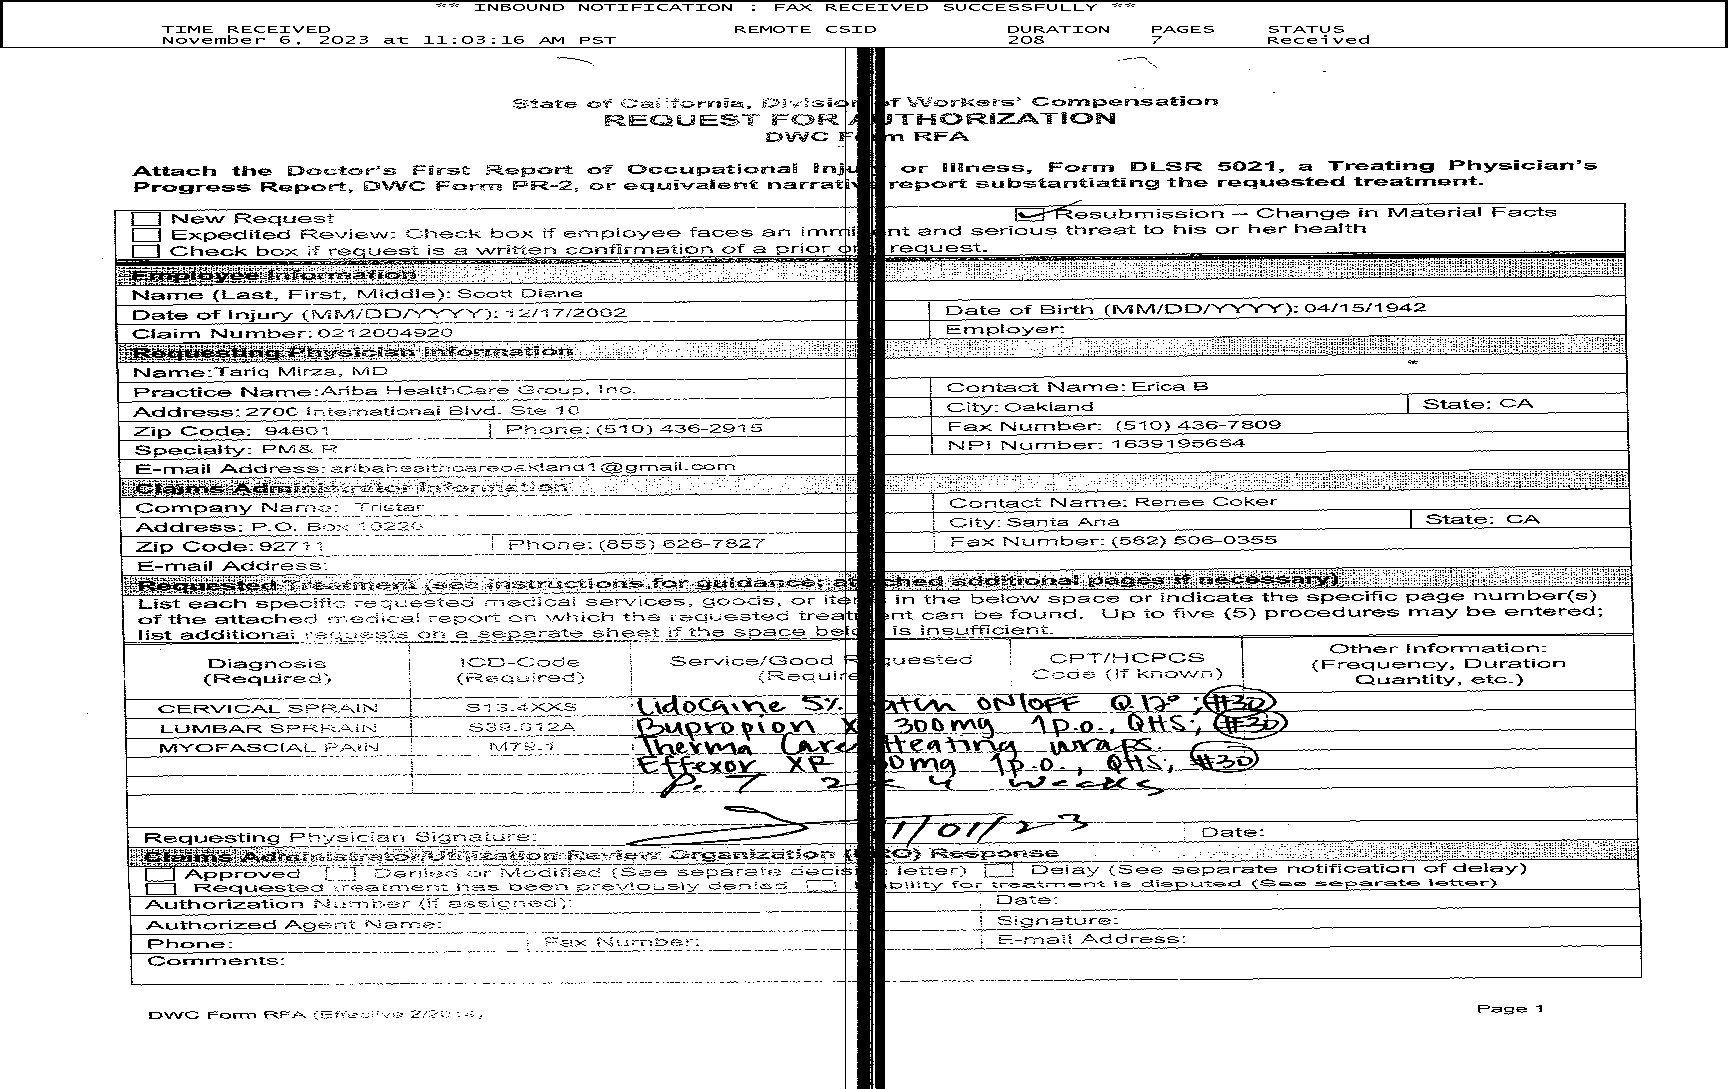 ** INBOUND NOTIFICATION : FAX RECEIVED SUCCESSFULLY **
TIME RECEIVED REMOTE CSID DURATION PAGES STATUS
November 6, 2023 at 11:03:16 AM PST 208 7 Received
State of California, Division of Workers' Compensation
REQUEST FOR AUTHORIZATION
DWC Form RFA
Attach the Doctor's First Report of Occupational Injury or Illness, Form DLSR 5021, a Treating Physician's
Progress Report, DWC Form PR-2, or equivalent narrative report substantiating the requested treatment.
New Request Resubmission – Change in Material Facts
Expedited Review: Check box if employee faces an imminent and serious threat to his or her health
Check box if request is a written confirmation of a prior oral request.
Employee Information
Name (Last, First, Middle): Scott Diane
Date of Injury (MM/DD/YYYY): 12/17/2002 Date of Birth (MM/DD/YYYY): 04/15/1942
Claim Number: 0212004920 Employer:
Requesting Physician Information
Name: Tariq Mirza, MD
Practice Name: Ariba HealthCare Group, Inc. Contact Name: Erica B
Address: 2700 International Blvd. Ste 10 City: Oakland State: CA
Zip Code: 94601 Phone: (510) 436-2915 Fax Number: (510) 436-7809
Specialty: PM& R NPI Number: 1639195654
E-mail Address: aribahealthcareoakland1@gmail.com
Claims Administrator Information
Company Name: Tristar Contact Name: Renee Coker
Address: P.O. Box City: Santa Ana State: CA
Zip Code: 92711 Phone: (855) 626-7827 Fax Number: (562) 506-0355
E-mail Address:
Requested Treatment (see instructions for guidance; attached additional pages if necessary)
List each specific requested medical services, goods, or items in the below space or indicate the specific page number(s)
of the attached medical report on which the requested treatment can be found. Up to five (5) procedures may be entered;
list additional requests on a separate sheet if the space below is insufficient.
Diagnosis (Required) ICD-Code (Required) Service/Good Requested (Required) CPT/HCPCS Code (If known) Other Information: (Frequency, Duration Quantity, etc.)
CERVICAL SPRAIN S13.4XXS Lidocaine 5% Patch ON/OFF Q 12°; #30
LUMBAR SPRRAIN Bupropion XL 300mg 1p.o., QHS; #30
MYOFASCIAL PAIN M79.1 Therma Care Heating wraps.
Effexor XR 1p.o., QHS; #30
4 weeks
Requesting Physician Signature: 11/01/23 Date:
Claims Administrator/Utilization Review Organization (URO) Response
Approved Denied or Modified (See separate decision letter) Delay (See separate notification of delay)
Requested treatment has been previously denied Liability for treatment is disputed (See separate letter)
Authorization Number (if assigned): Date:
Authorized Agent Name: Signature:
Phone: Fax Number: E-mail Address:
Comments:
DWC Form RFA (Effective 2/2014) Page 1